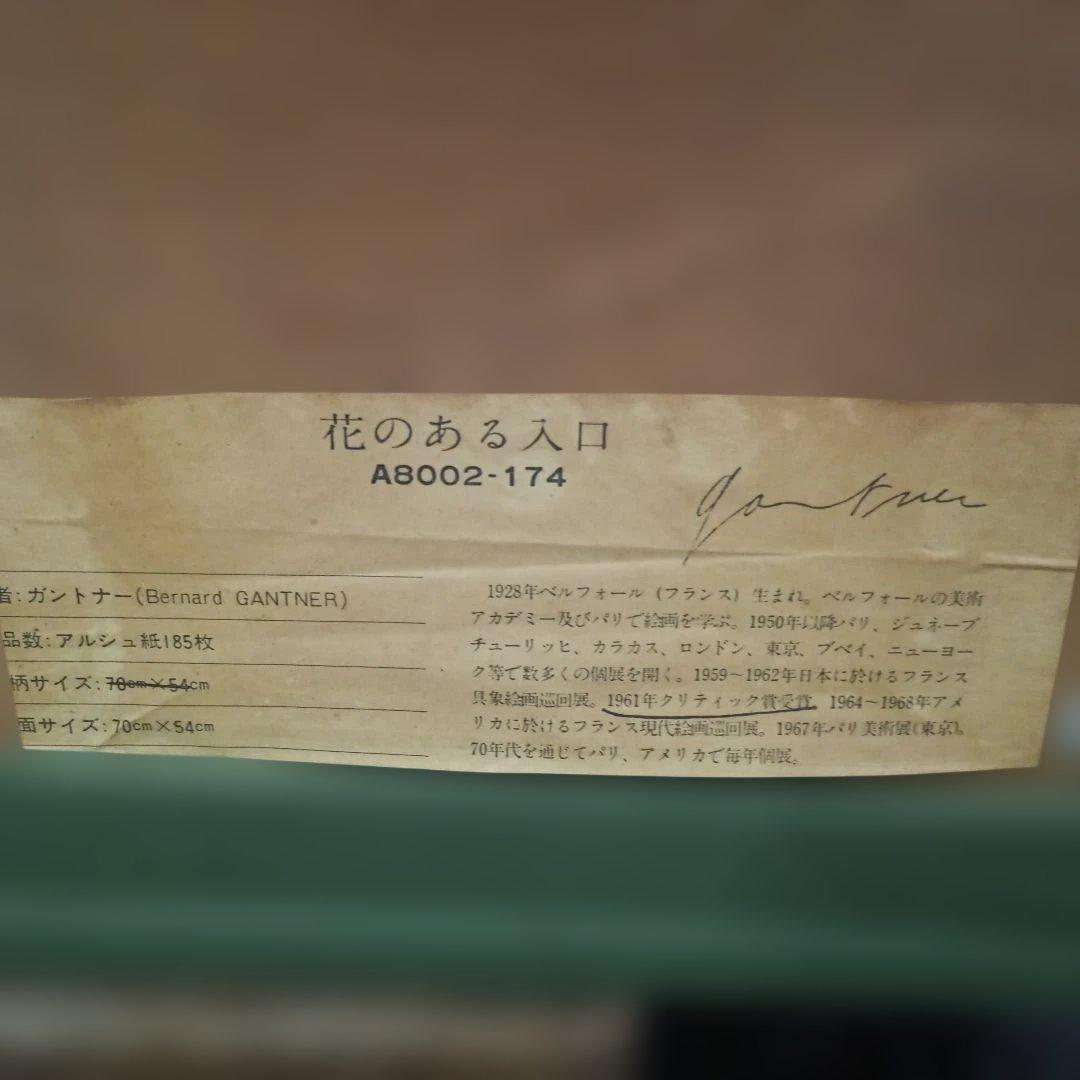 花のある入口
A8002-174
gantner
者:ガントナー(Bernard GANTNER)
品数:アルシュ紙185枚
柄サイズ:70cm×54cm
面サイズ:70cm×54cm
1928年ベルフォール(フランス)生まれ。ベルフォールの美術
アカデミー及びパリで絵画を学ぶ。1950年以降パリ、ジュネーブ
チューリッヒ、カラカス、ロンドン、東京、ブベイ、ニューヨー
ク等で数多くの個展を開く。1959〜1962年日本に於けるフランス
具象絵画巡回展。1961年クリティック賞受賞。1964〜1968年アメ
リカに於けるフランス現代絵画巡回展。1967年パリ美術展(東京)。
70年代を通じてパリ、アメリカで毎年個展。